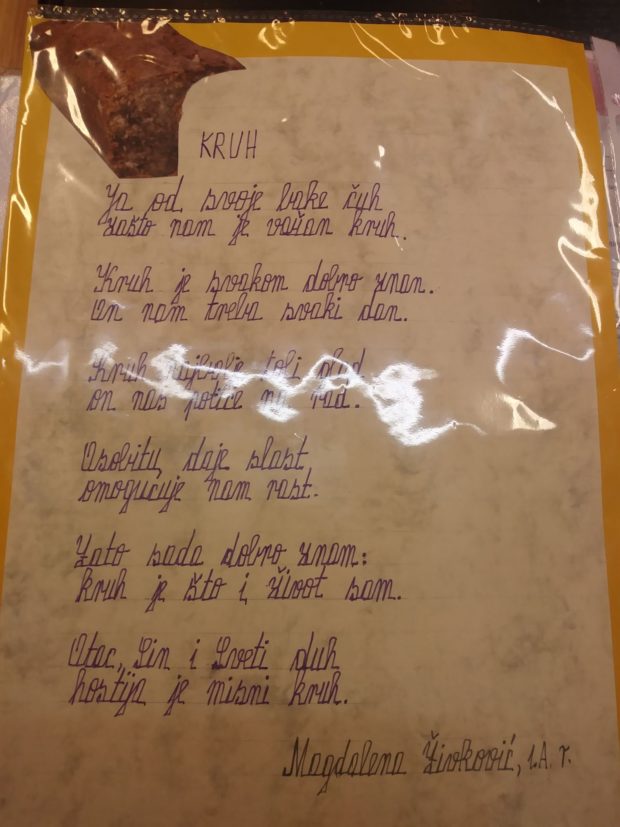 KRUH
Ja od svoje bake čuh
zašto nam je važan kruh.
Kruh je svakom dobro znan.
On nam treba svaki dan.
Kruh najbolje toli glad
on nas potiče na rad.
Osobitu daje slast
omogućuje nam rast.
Zato sada dobro znam:
kruh je što i život sam.
Otac, Sin i Sveti duh
hostija je misni kruh.
Magdalena Živković, 1.A. r.